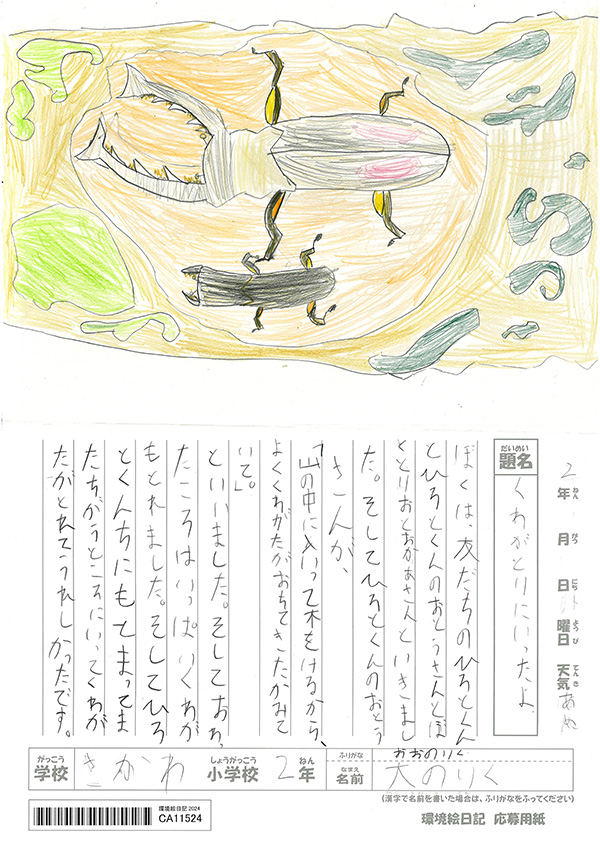 2年 月 日 曜日 天気 あめ
ねん がつ にち ようび てんき
だいめい
題名
くわがとりにいったよ。
ぼくは、友だちのひろとくん
とひろとくんのおとうさんとぼ
ととりおとおかあさんといきまし
た。そしてひろとくんのおとう
さんが、
「山の中に入いって木をけるから、
よくくわがたがおちてきたかみて
いて。」
といいました。そしておわっ
たころはいっぱいくわが
もとれました。そしてひろ
とくんちにもとまってま
たちがうところにいってくわが
たがとれてうれしかったです。
がっこう しょうがっこう ねん ふりがな おおのりく
学校 かわ 小学校 2年 なまえ 名前 大のりく
(漢字で名前を書いた場合は、ふりがなをふってください)
環境絵日記2024
CA11524
環境絵日記 応募用紙